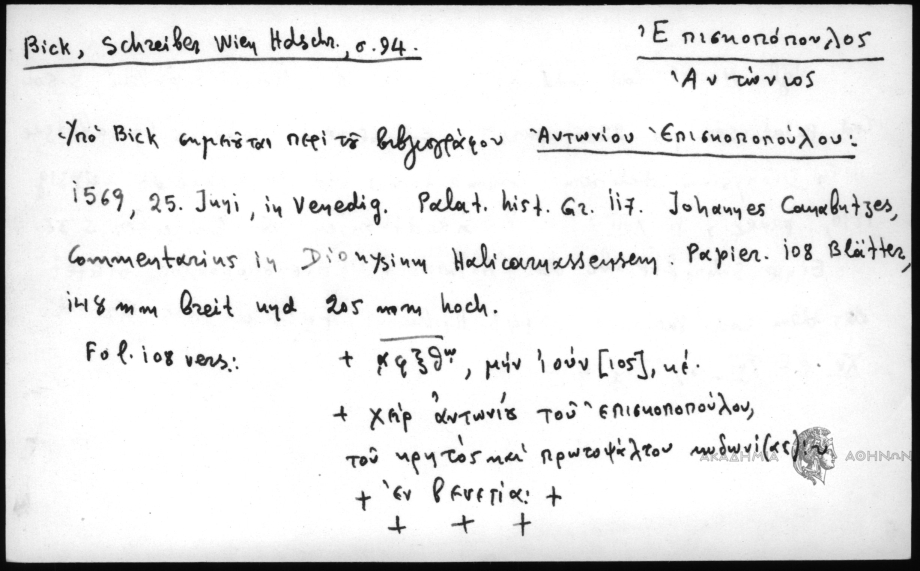 Bick, Schreiber Wien Hdschr., σ. 94.
Ἐπισκοπόπουλος
Ἀντώνιος
Ὑπὸ Bick σημειοῦται περὶ τοῦ βιβλιογράφου Ἀντωνίου Ἐπισκοποπούλου:
1569, 25. Juni, in Venedig. Palat. hist. Gr. 117. Johannes Canabutzes,
Commentarius in Dionysium Halicarnassensem. Papier. 108 Blätter,
148 mm breit und 205 mm hoch.
Fol. 108 vers.:
+ ͵αφξθω, μὴν ἰούν[ιος], κέ.
+ χεὶρ ἀντωνίου τοῦ Ἐπισκοποπούλου,
τοῦ κρητός καὶ πρωτοψάλτου κυδωνί(ας)
+ Ἐν βενετία: +
+ + +
ΑΚΑΔΗΜΙΑ ΑΘΗΝΩΝ